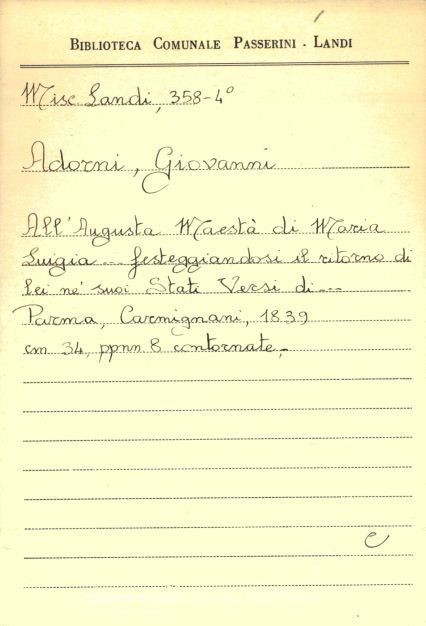 BIBLIOTECA COMUNALE PASSERINI - LANDI
Misc Landi, 358-4°
Adorni, Giovanni
All'Augusta Maestà di Maria
Luigia --- festeggiandosi il ritorno di
lei ne' suoi Stati Versi di---
Parma, Carmignani, 1839
cm 34, ppnn 8 contornate.-
C